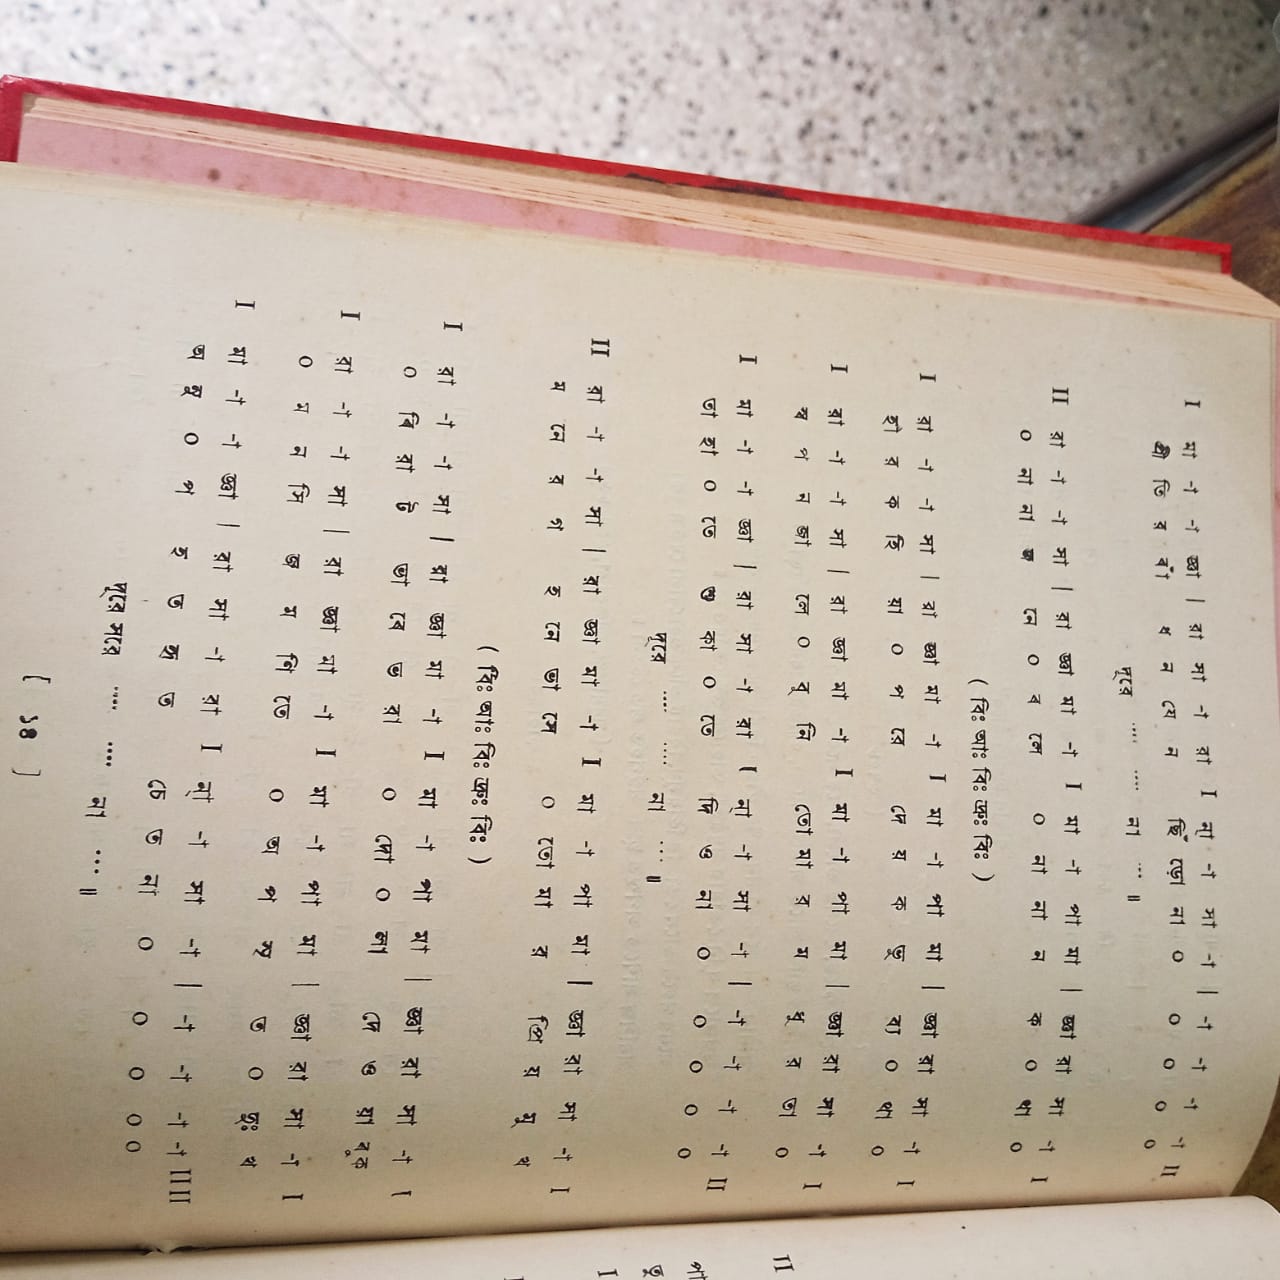 I মা -া -া জ্ঞা | রা সা -া রা I ন্া -া সা -া | -া -া -া -া II
ক্ষী তি র বাঁ ধ ন যে ন ছিঁ ড়ো না ০ ০ ০ ০ ০
দূরে .... .... না ... ॥
II রা -া -া মা | রা জ্ঞা মা -া I মা -া পা মা | জ্ঞা রা সা -া I
০ না না জ নে ০ ব লে ০ না না ন ক ০ থা ০
( বিঃ আঃ বিঃ ক্রঃ বিঃ )
I রা -া -া মা | রা জ্ঞা মা -া I মা -া পা মা | জ্ঞা রা সা -া I
হৃ র ক হি য়া ০ প রে দে য় ক তু ব্য ০ থা ০
I রা -া -া মা | রা জ্ঞা মা -া I মা -া পা মা | জ্ঞা রা সা -া I
স্ব প ন জা লে ০ বু নি তো মা র ম ধু র তা ০
I মা -া -া জ্ঞা | রা সা -া রা I ন্া -া সা -া | -া -া -া -া II
তা হা ০ তে শু কা ০ তে দি ও না ০ ০ ০ ০ ০
দূরে .... .... না ... ॥
II রা -া -া মা | রা জ্ঞা মা -া I মা -া পা মা | জ্ঞা রা সা -া I
ম নে র গ হ নে ভা সে ০ তো মা র প্রি য় মু খ
( বিঃ আঃ বিঃ ক্রঃ বিঃ )
I রা -া -া মা | রা জ্ঞা মা -া I মা -া পা মা | জ্ঞা রা সা -া I
০ বি রা ট ভা বে ভ রা ০ দো ০ লা দে ও য়া
I রা -া -া মা | রা জ্ঞা মা -া I মা -া পা মা | জ্ঞা রা সা -া I
০ ম ন সি জ ম ণি তে ০ অ প সৃ ত ০ দুঃ খ
I মা -া -া জ্ঞা | রা সা -া রা I ন্া -া সা -া | -া -া -া -া IIII
অ নু ০ প হ ত স্ম ত চে ত না ০ ০ ০ ০ ০
দূরে সরে .... .... না ... ॥
[ ১৪ ]
II
পা
I